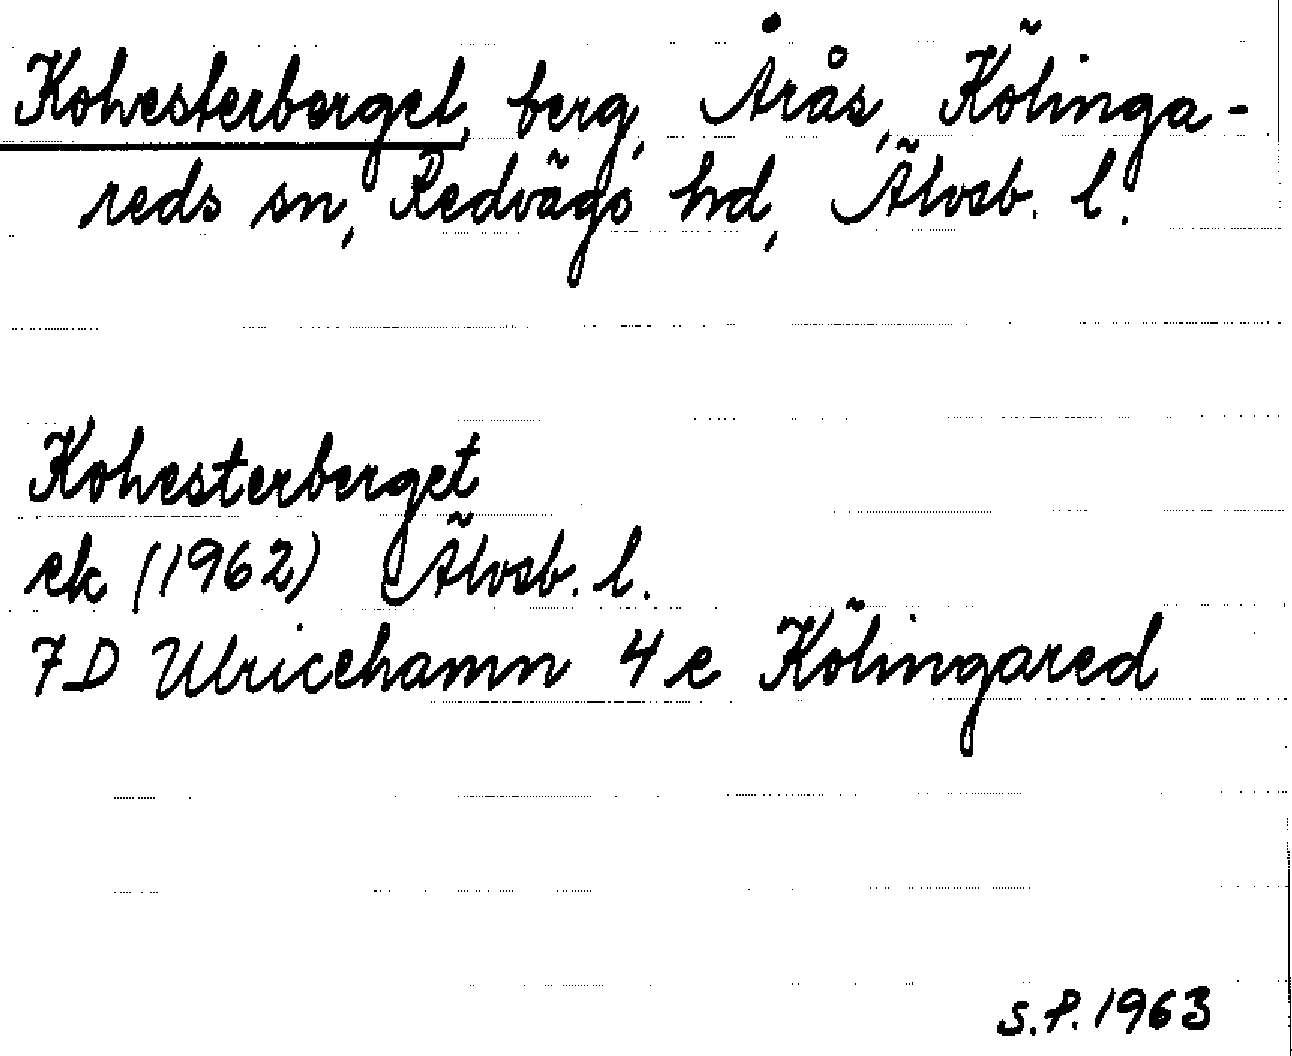 Kohesterberget, berg, Årås, Kölinga-
reds sn, Redvägs hd, Älvsb. l.
Kohesterberget
ek (1962) Älvsb. l.
7D Ulricehamn 4e Kölingared
S.P. 1963